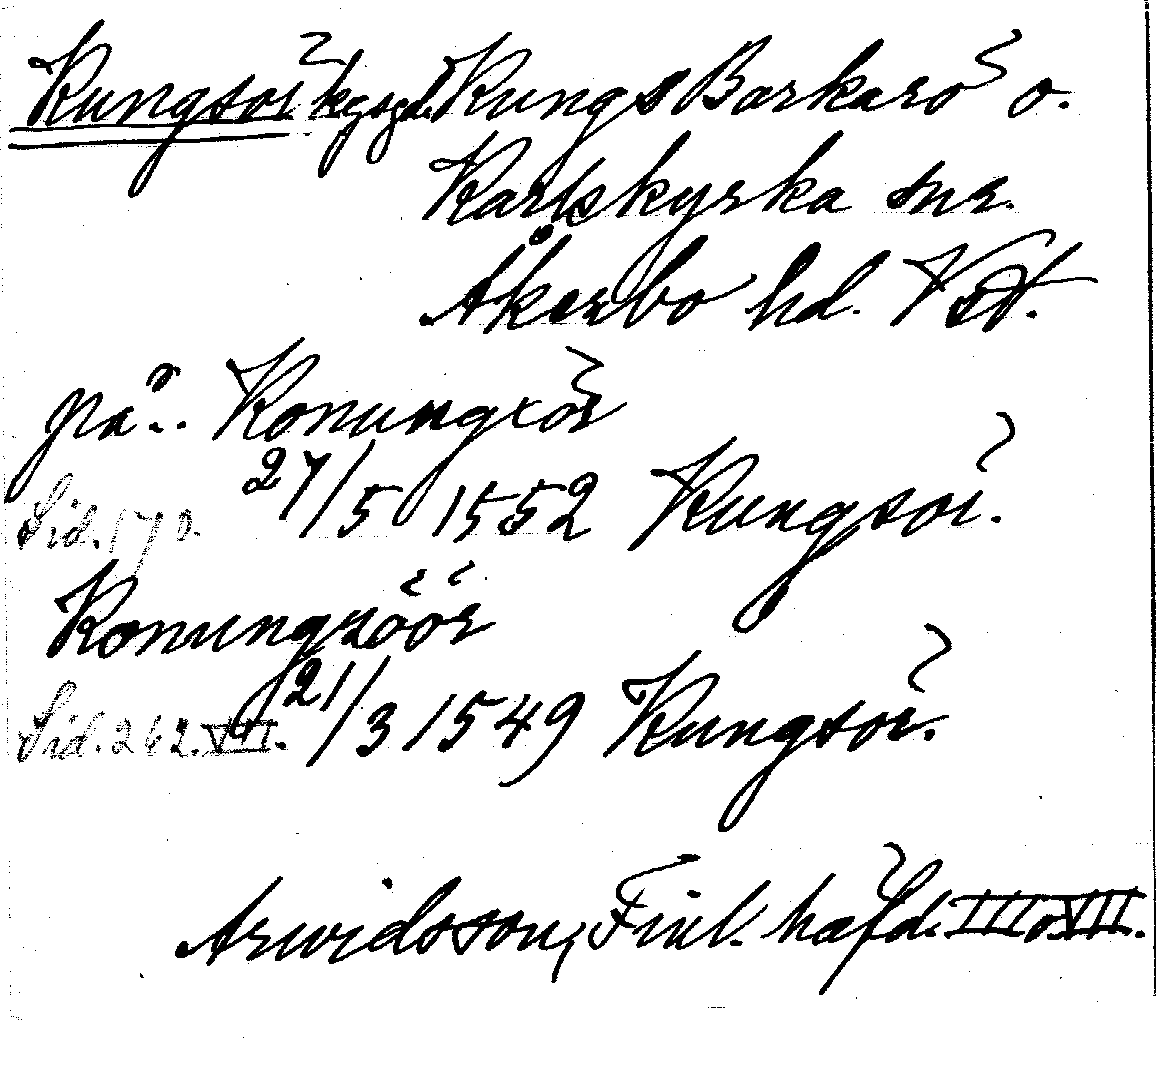 Kungsör kgsgd. Kungs Barkarö o.
Karlskyrka snr.
Åkerbo hd. Vstl.
på.. Konungxör
27/5 1552 Kungsör.
Sid. 170.
Konungzöör
21/3 1549 Kungsör.
Sid. 262. VII.
Arwidsson, Finl. häfd. III o VII.